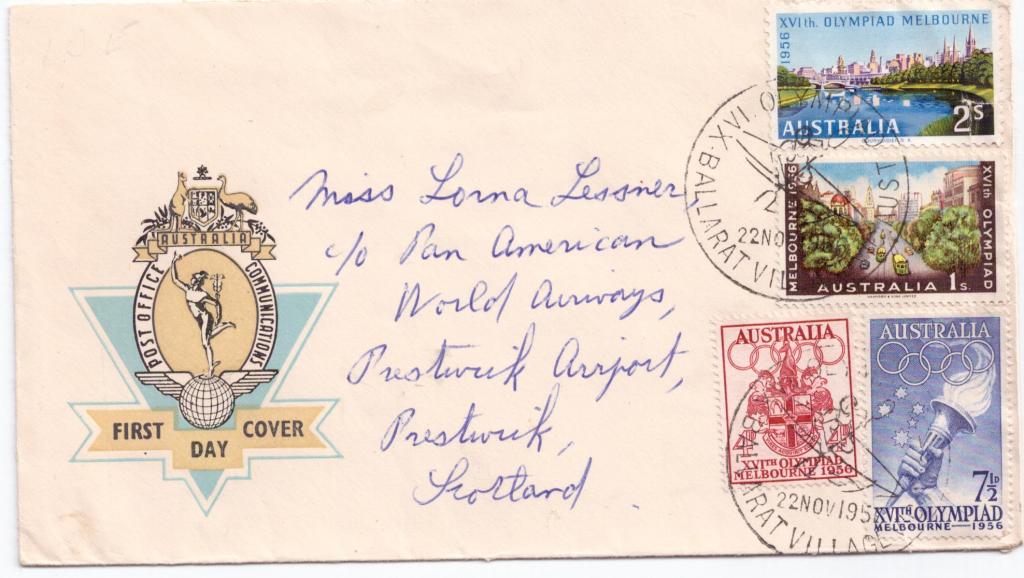 XVIth. OLYMPIAD MELBOURNE
1956
AUSTRALIA 2S
MELBOURNE 1956
XVIth OLYMPIAD
AUSTRALIA 1s.
XVI OLYMPI
BALLARAT VILLAGE
22NOV
AUST
AUSTRALIA
POST OFFICE
COMMUNICATIONS
FIRST DAY COVER
Miss Lorna Lessner,
c/o Pan American
World Airways,
Prestwick Airport,
Prestwick,
Scotland
AUSTRALIA
XVITH OLYMPIAD
MELBOURNE 1956
AUSTRALIA
7½D
XVITH OLYMPIAD
MELBOURNE—1956
22NOV1956
BALLARAT VILLAGE